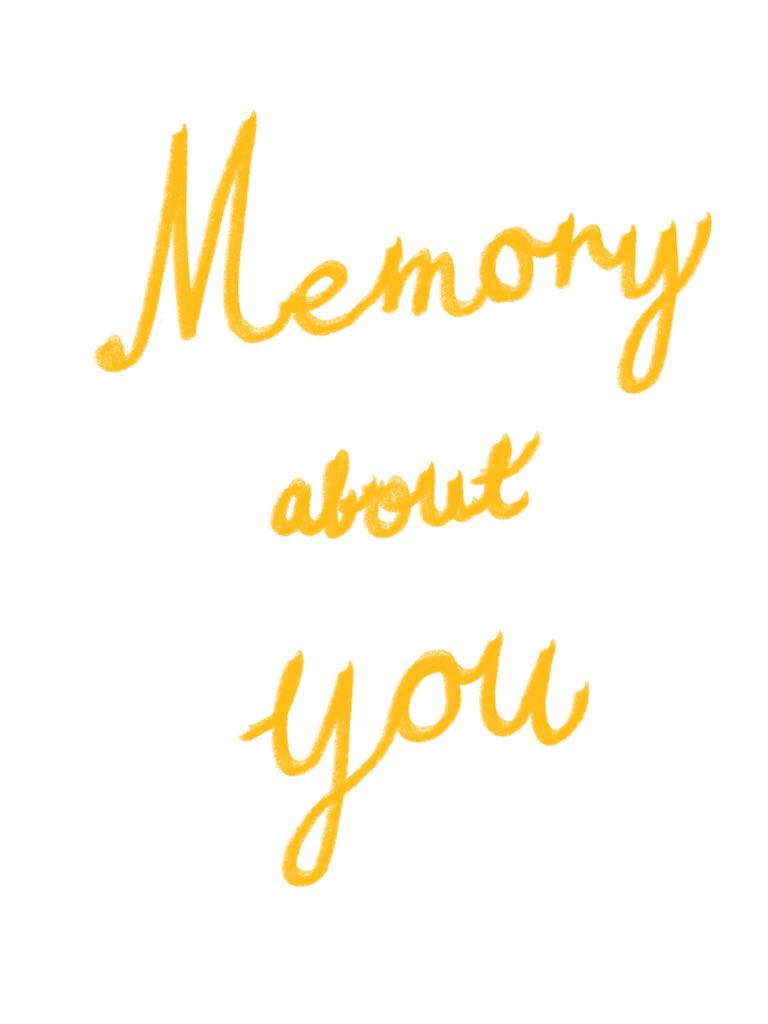 Memory
about
you